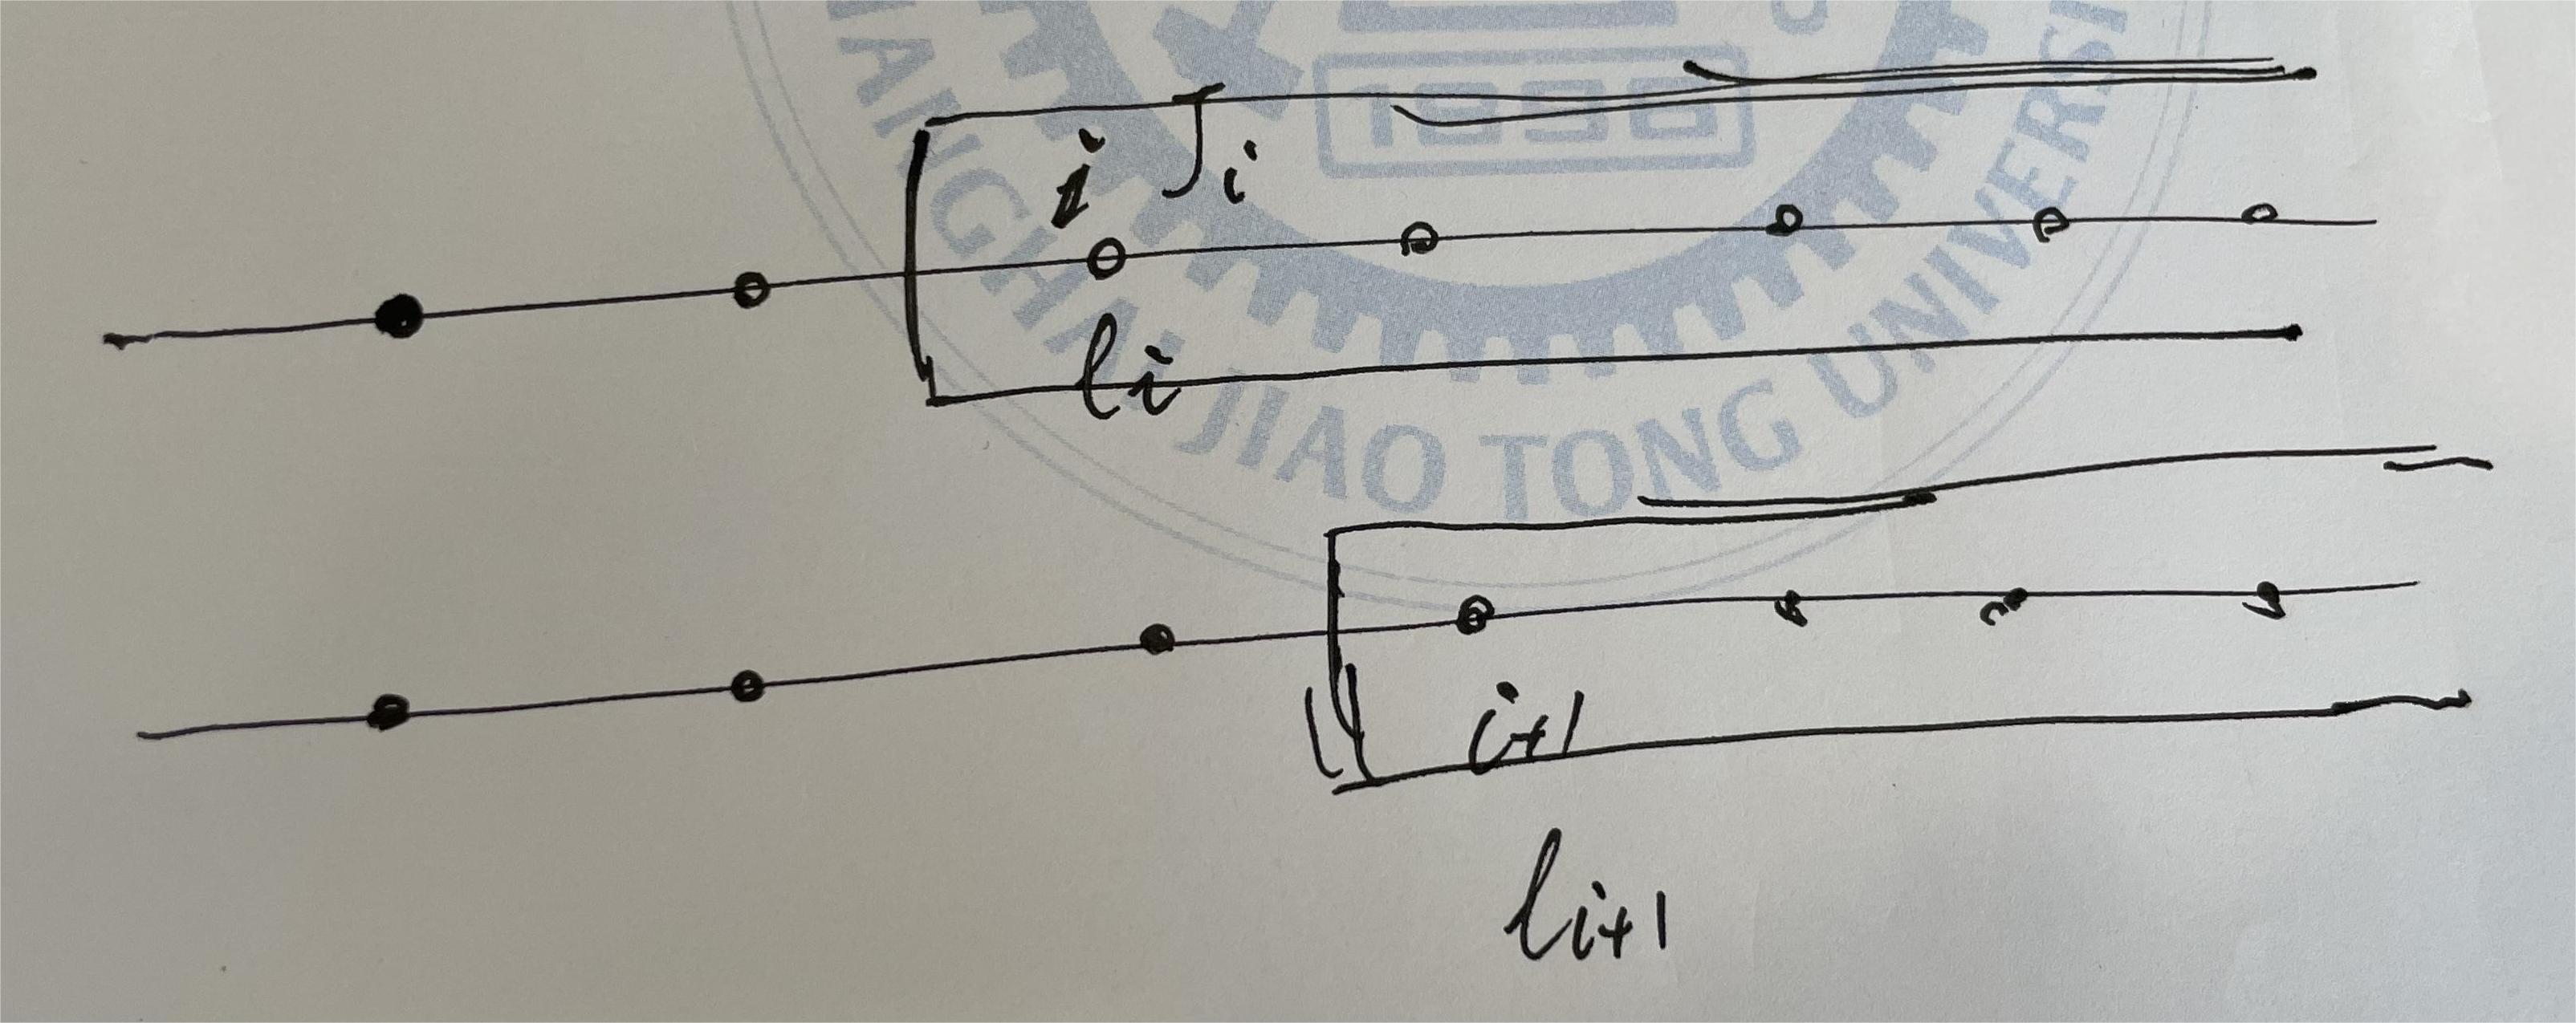 1896
SHANGHAI JIAO TONG UNIVERSI
i J i
li
i+1
li+1